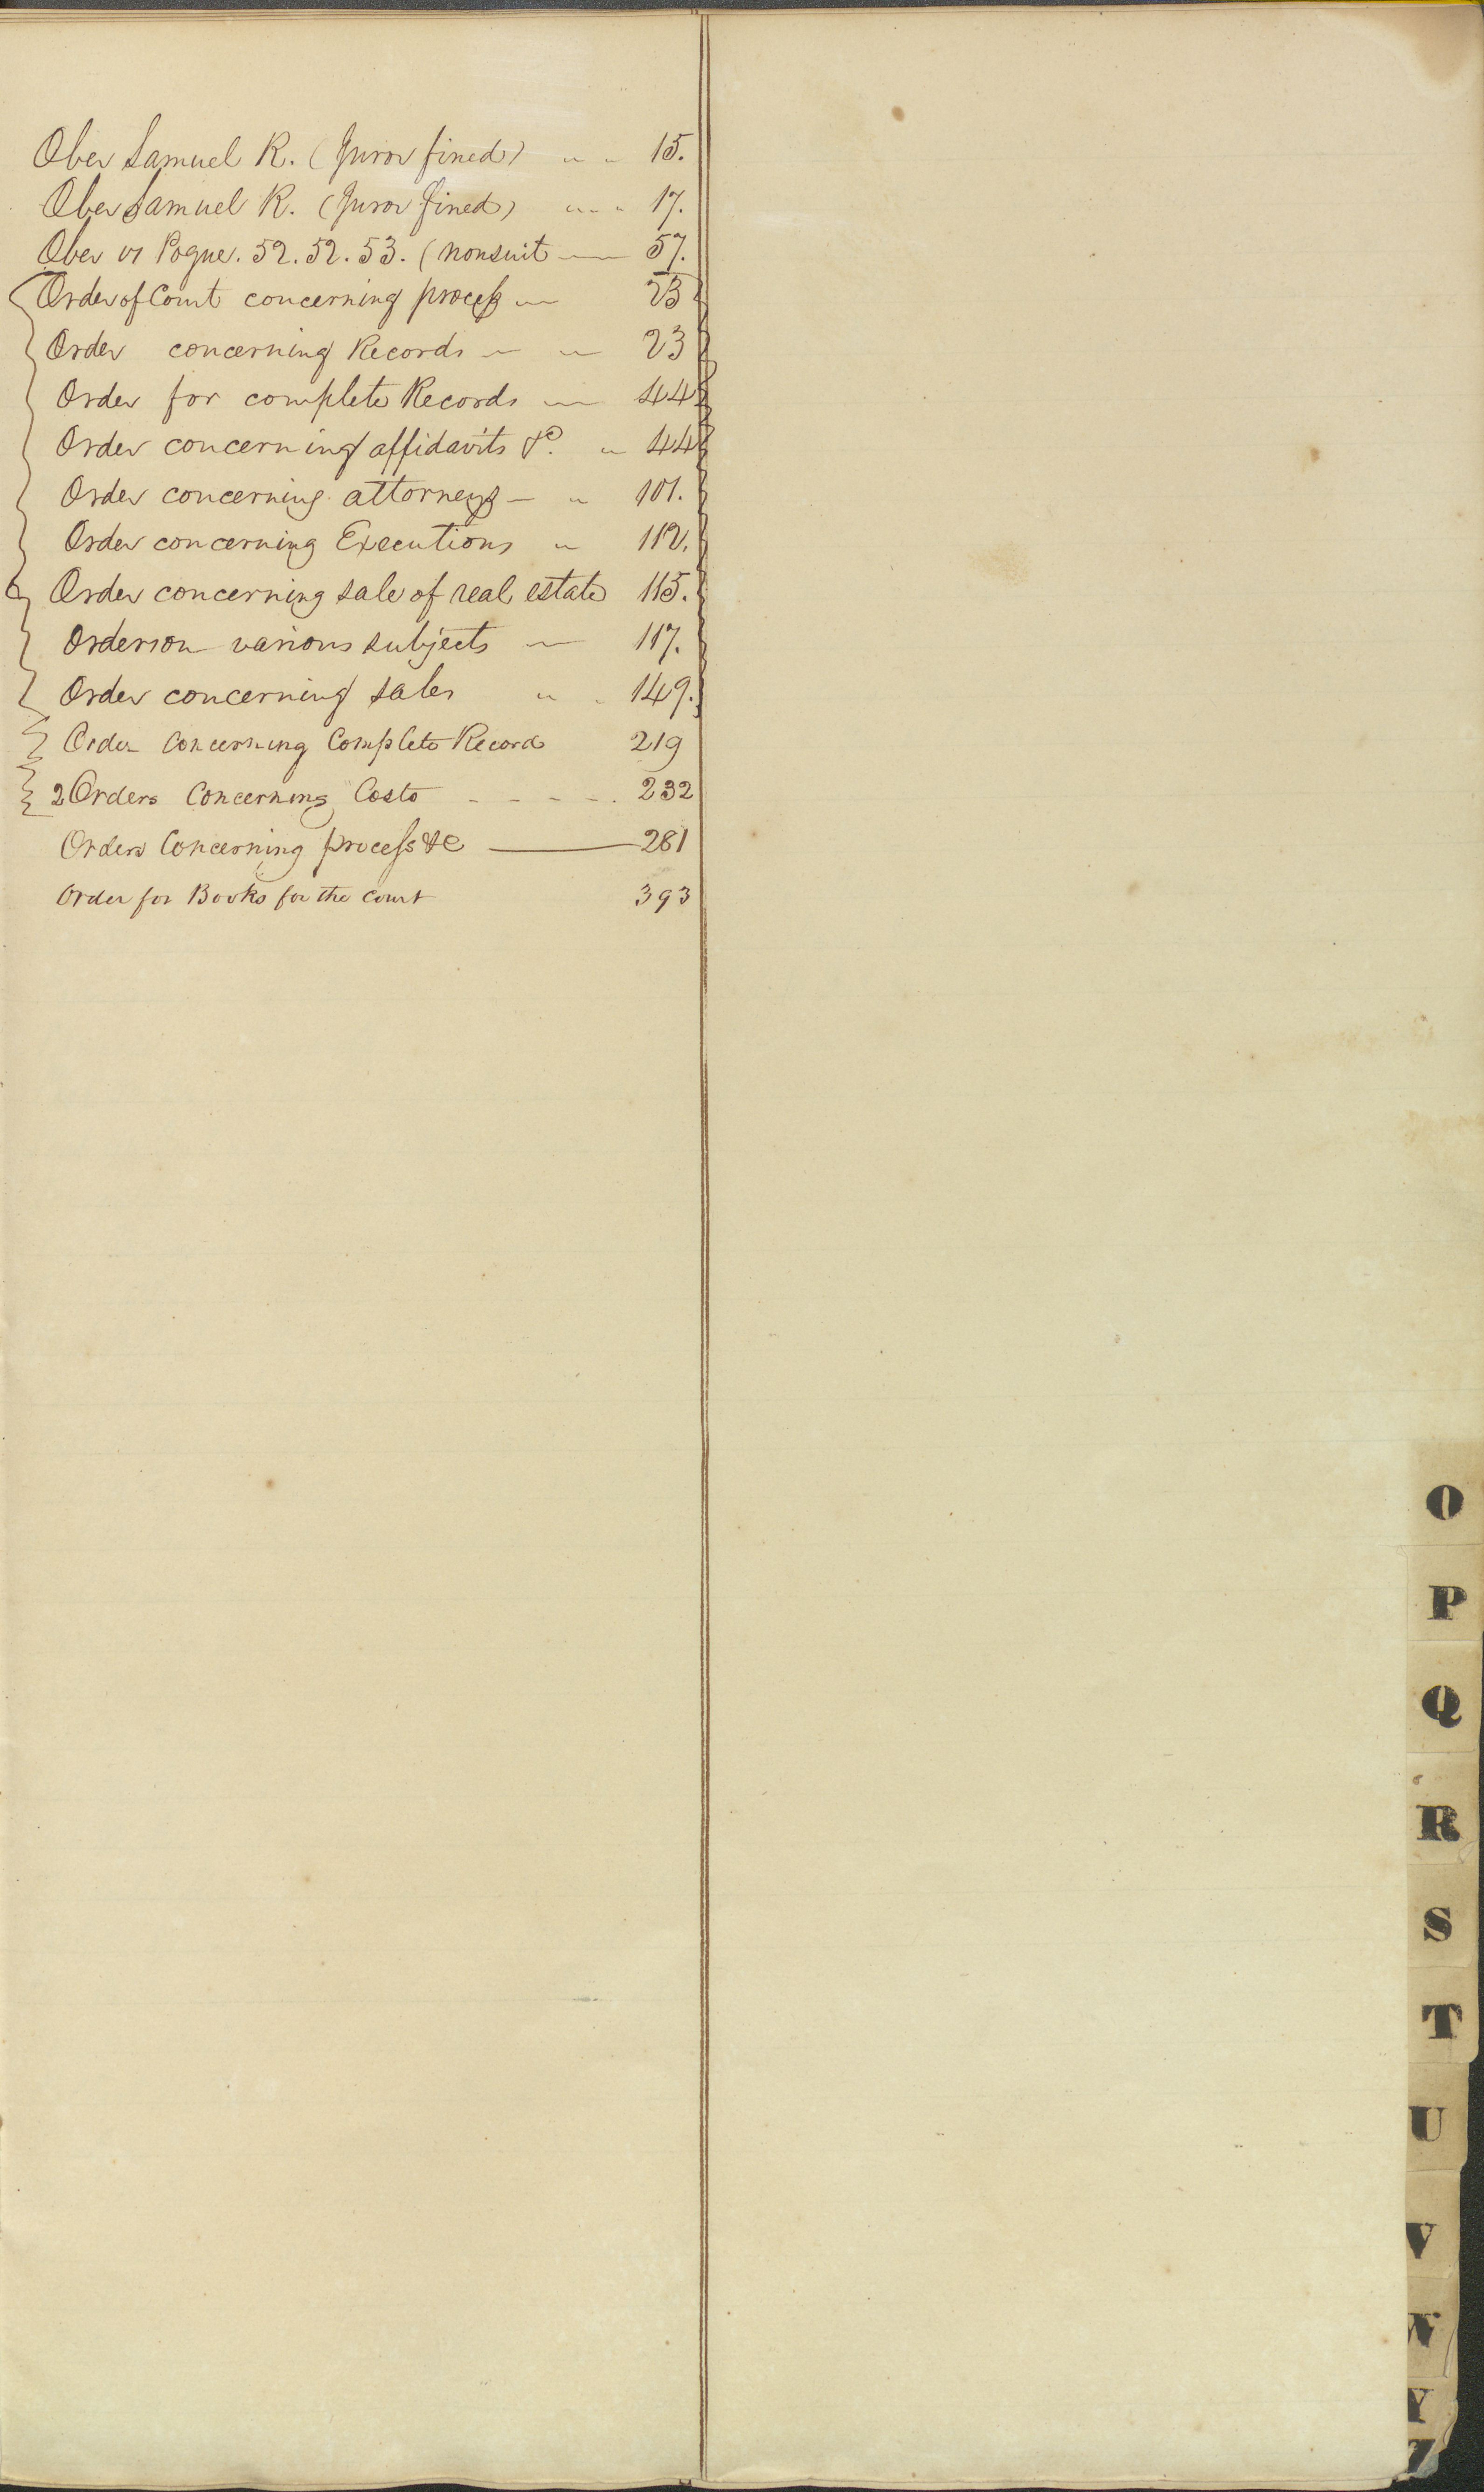 Ober Samuel R. (Juror fined) 15.
Ober Samuel R. (Juror fined) 17.
Ober vs Pogue. 52. 52. 53. (nonsuit 57.
Order of Court concerning process 23
Order concerning Records 23
Order for complete Records 44
Order concerning affidavits &c. 44
Order concerning attorneys 101.
Order concerning Executions 112.
Order concerning sale of real estate 115.
Orders on various subjects 117.
Order concerning sales 149.
Order Concerning Complete Record 219
2 Orders Concerning Costs 232
Orders Concerning process &c 281
Order for Books for the Court 393
O
P
Q
R
S
T
U
V
W
Y
Z